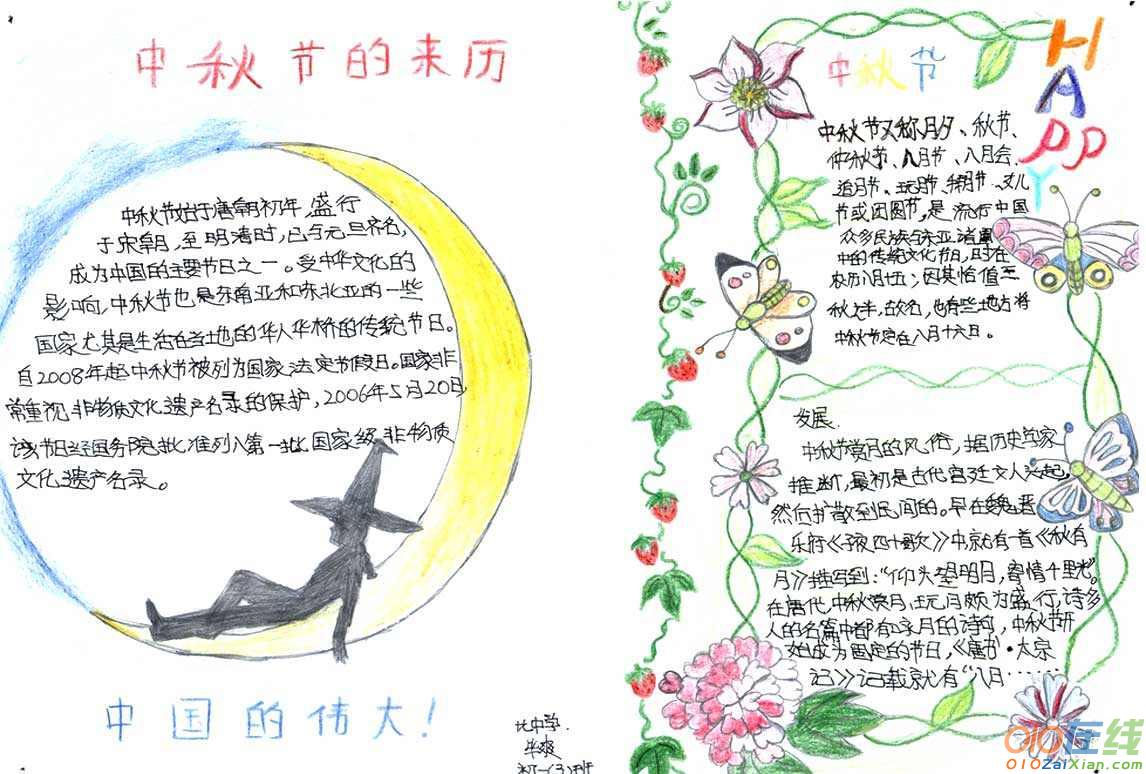 中秋节的来历
中秋节始于唐朝初年，盛行
于宋朝，至明清时，已与元旦齐名，
成为中国的主要节日之一。受中华文化的
影响，中秋节也是东南亚和东北亚的一些
国家尤其是生活在当地的华人华桥的传统节日。
自2008年起中秋节被列为国家法定节假日。国家非
常重视非物质文化遗产名录的保护，2006年5月20日
该节日经国务院批准列入第一批国家级非物质
文化遗产名录。
中国的伟大！
初一(3)班
HAPPY
中秋节
中秋节又称月夕、秋节、
仲秋节、八月节、八月会、
追月节、玩月节、拜月节、女儿
节或团圆节，是流行中国
众多民族与东亚诸国
中的传统文化节日，时在
农历八月十五；因其恰值三
秋之半，故名，也有些地方将
中秋节定在八月十六日。
发展.
中秋节赏月的风俗，据历史学家
推断，最初是古代宫廷文人兴起，
然后扩散到民间的。早在魏晋
乐府《子夜四十歌》中就有一首《秋有
月》描写到："仰头望明月，寄情千里光"。
在唐代，中秋赏月、玩月颇为盛行，诗多
人的名篇中都有咏月的诗句，中秋节开
始成为固定的节日，《唐书·太宗
记》记载就有"八月……
010在线
010ZaiXian.com